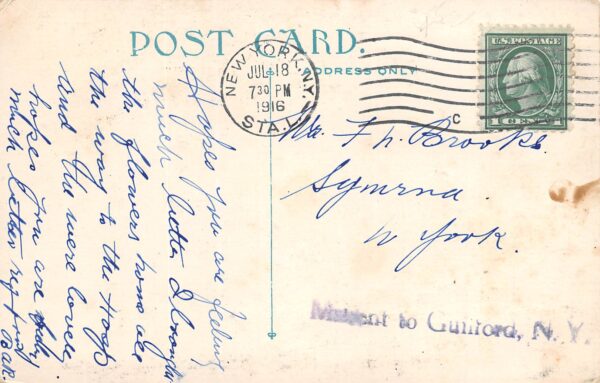 POST CARD.
ADDRESS ONLY
NEW YORK, N.Y.
JUL 18
7 30 PM
1916
STA. L.
C
U.S. POSTAGE
1 CENT 1
Mr. F. N. Brooks.
Symrna.
N York.
Missent to Guilford, N. Y.
Hopes you are feeling
much better I brought
the flowers home all
the way to the
and the were lovely
hopes you are
much better